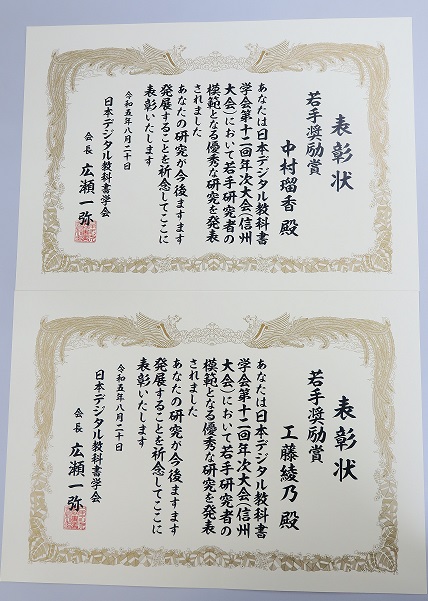 表彰状
若手奨励賞
中村瑠香 殿
あなたは日本デジタル教科書
学会第十二回年次大会(信州
大会)において若手研究者の
模範となる優秀な研究を発表
されました
あなたの研究が今後ますます
発展することを祈念してここに
表彰いたします
令和五年八月二十日
日本デジタル教科書学会
会長 広瀬一弥
表彰状
若手奨励賞
工藤綾乃 殿
あなたは日本デジタル教科書
学会第十二回年次大会(信州
大会)において若手研究者の
模範となる優秀な研究を発表
されました
あなたの研究が今後ますます
発展することを祈念してここに
表彰いたします
令和五年八月二十日
日本デジタル教科書学会
会長 広瀬一弥